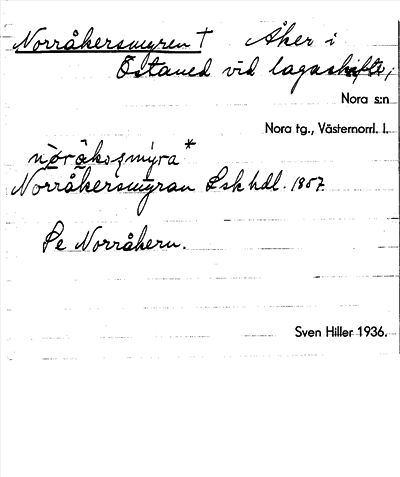 Norråkersmyren † Åker i
Östaned vid lagaskifte;
Nora s:n
Nora tg., Västernorrl. l.
Norråkersmyran Lskhdl. 1857.
Se Norråkern.
Sven Hiller 1936.